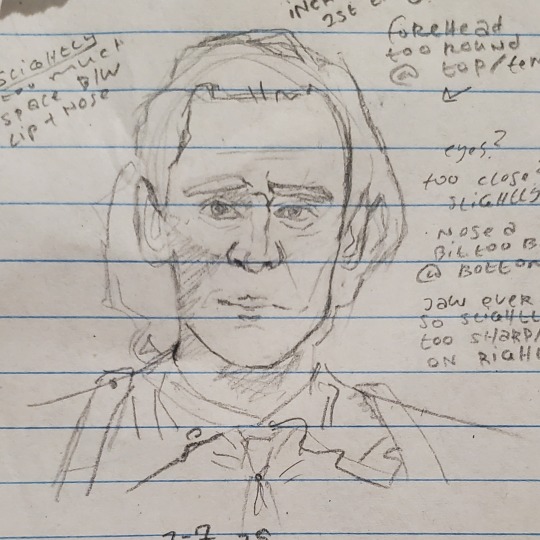 2st
SLIGHTLY
too much
space B/W
Lip + NOSE
foreHead
too round
@ top/tem
eyes?
too close?
SLIGHTLY
NOSE a
Bit too B
@ BOTTOM
JAW over
so SLIGHTL
too SHARP/
ON RIGHT